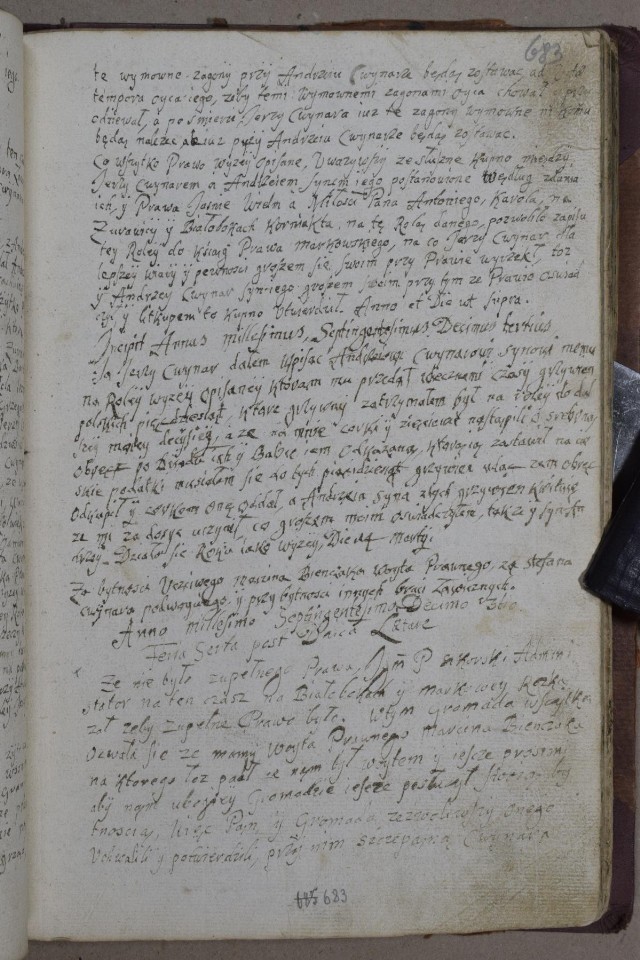 683
te wymowne zagony przy Andrzeiu Cwynarze będą zostawac ad
tempora oyca iego, żeby temi wymownemi zagonami oyca chował
odziewał, a po smierci Jerzy Cwynara iuz te zagony wymowne ni komu
będą nalezec ale iuz przy Andrzeiu Cwynarze będą zostawac.
Co wszytko Prawo wyzey opisane, Uwazywszy ze słuszne kupno między
Jerzy Cwynarem a Andrzeiem synem iego postanowione według zdania
ich, y Prawa Jasnie Wielm a Miłosci Pana Antoniego, Karola, na
Zurawicy y Białobokach Korniakta, na tę Rolą danego, pozwoliło zapisu
tey Roley do ksiąg Prawa markowskiego, na co Jerzy Cwynar dla
lepszey wiary y pewnosci groszem się swoim przy Prawie wyrzekł, toz
y Andrzey Cwynar syn iego groszem swoim przy tym ze Prawo
y litkupem to kupno Utwierdził. Anno et Die ut supra.
Incipit Annus millesimus, Septingentesimus Decimus tertius
Ja Jerzy Cwynar dałem wpisac Andrzeiowi Cwynarowi, synowi memu
na Roley wyzey opisaney ktoram mu przedał wiecznemi czasy grzywien
polskich piędziesiąt, ktore grzywny zatrzymałem był na Roley do dal
szey między decisiey, a ze na mnie corka y nastąpiła o
obręcz po Dziadu ich y Babce iem odkazaną, ktorą
skie podatki musiałem się do tych piącidziesiąt grzywien wziąc zem obręc
odkupił y corkom onę oddał, a Andrzeia syna z tych grzywien kwituię
ze mi za dosyc uczynił, co groszem moim oswiadczyłem, takze y syn
drzy. Działo się Roku iako wyzey, Die 14 martij
Za bytnosci Uczciwego marcina Bienczaka woyta Prawnego, za stefana
Cwynara podwoyscego, y przy bytnosci inszych braci Ławicznych.
Anno millesimo Septingentesimo Decimo
Feria Sexta post Dnica Lætare
Ze nie było zupełnego Prawa, Jm P sikorski Admini
strator na ten czasz na Białobokach y markowey kaza
zał zeby zupełne Prawo było. Wtym Gromada wszytka
ozwała się ze mamy woyta Prawnego Marcina Bienczaka
na ktorego toz padł ze nam był woytem y iescze prosimy
aby nam ubogiey Gromadzie iescze posłuzył
tnoscią, więc Pan y Gromada zezwoliwszy onego
Uchwalili y potwierdzili, przy nim szczepana Cwynara
683